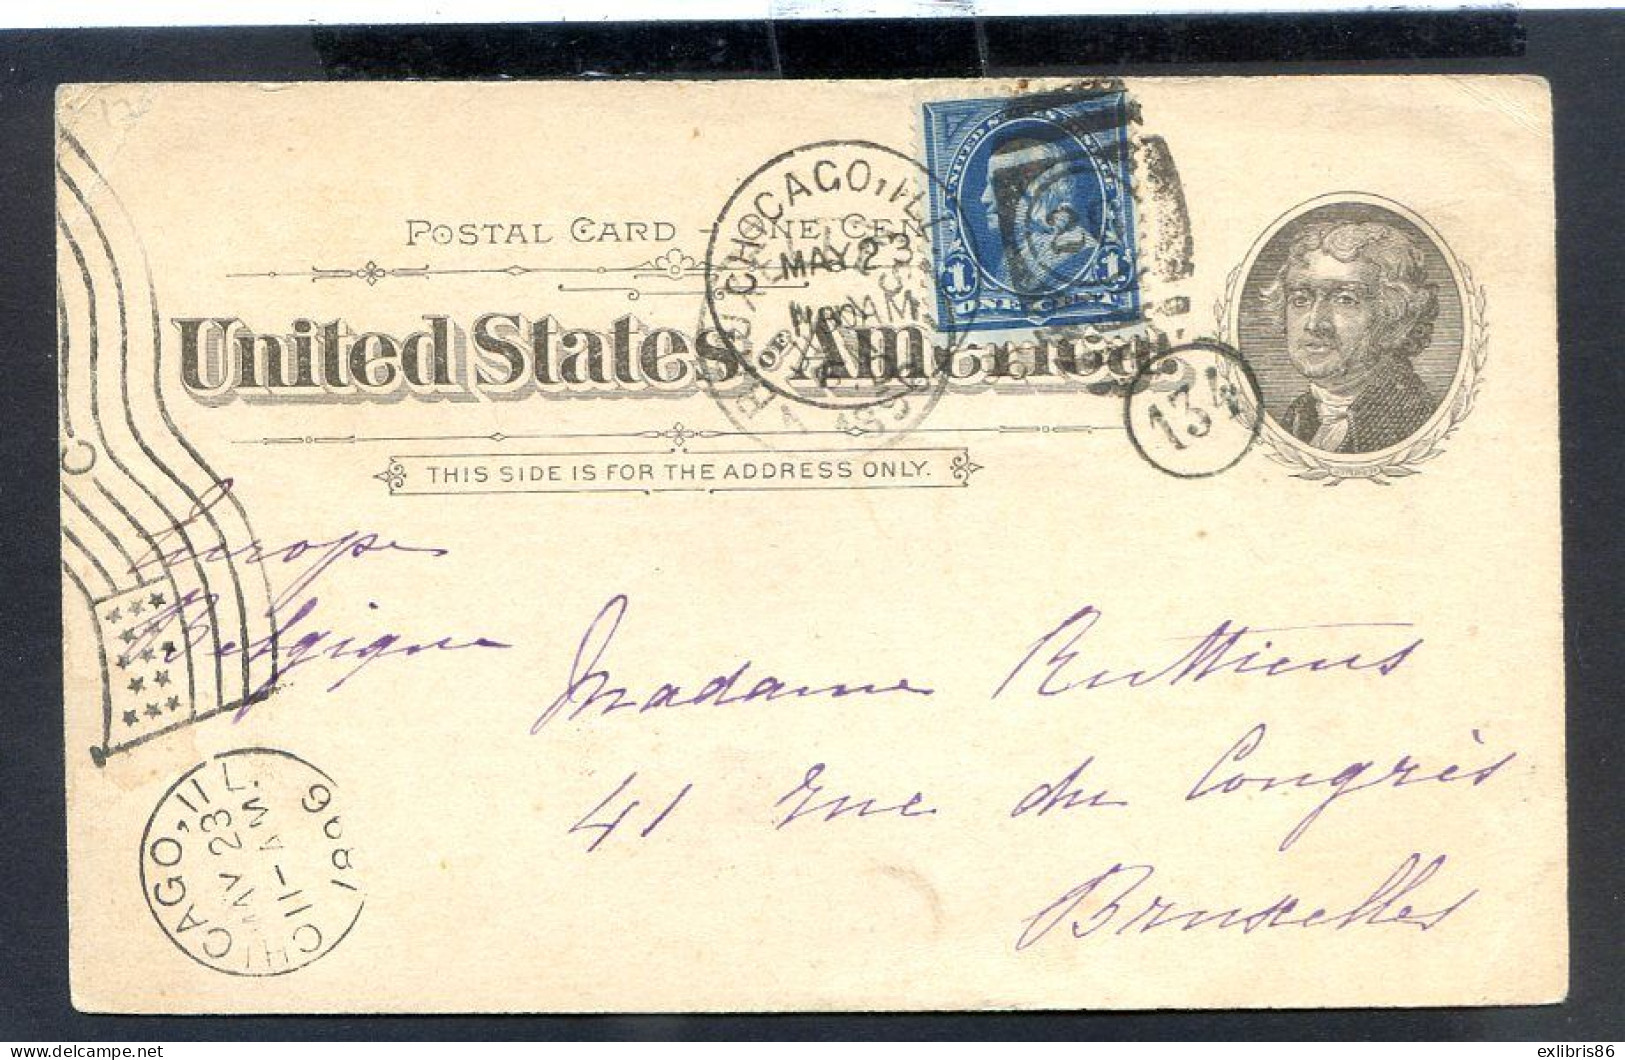 POSTAL CARD – ONE CENT
United States of America.
THIS SIDE IS FOR THE ADDRESS ONLY.
CHICAGO, ILL.
MAY 23
1130AM
UNITED STATES POSTAGE
1 1
ONE CENT
134
C
Europe
Belgique
Madame Ruttiens
41 rue du Congrès
Bruxelles
CHICAGO, ILL.
MAY 23
11-AM
1896
delcampe.net
exlibris86